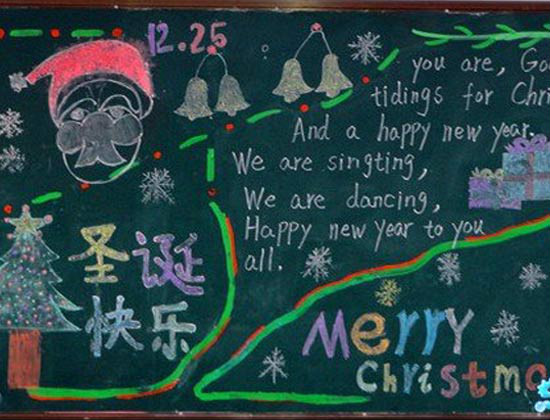 12.25
you are, Goo
tidings for Chri
And a happy new year.
We are singting,
We are dancing,
Happy new year to you
all.
圣诞
快乐
Merry
Christma